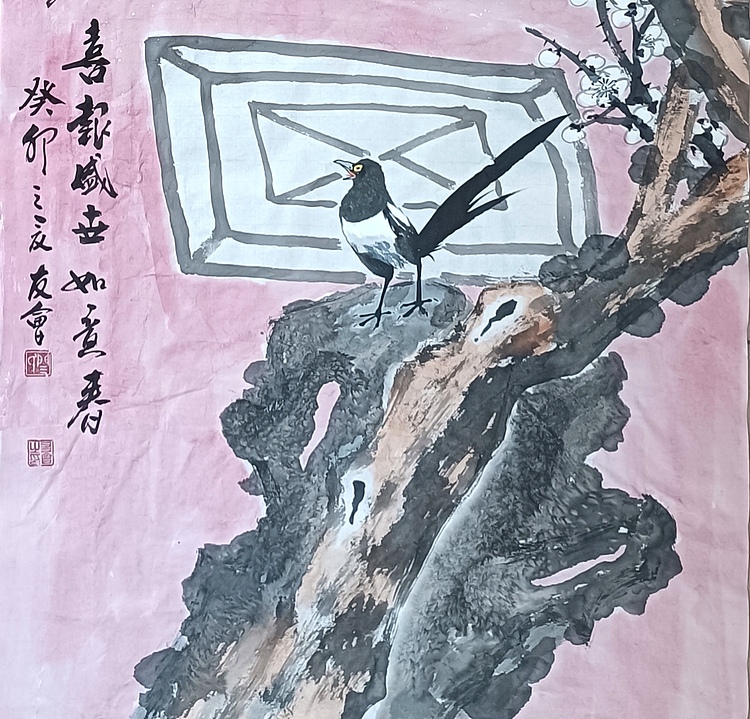 喜報盛世如意春
癸卯之夏友會